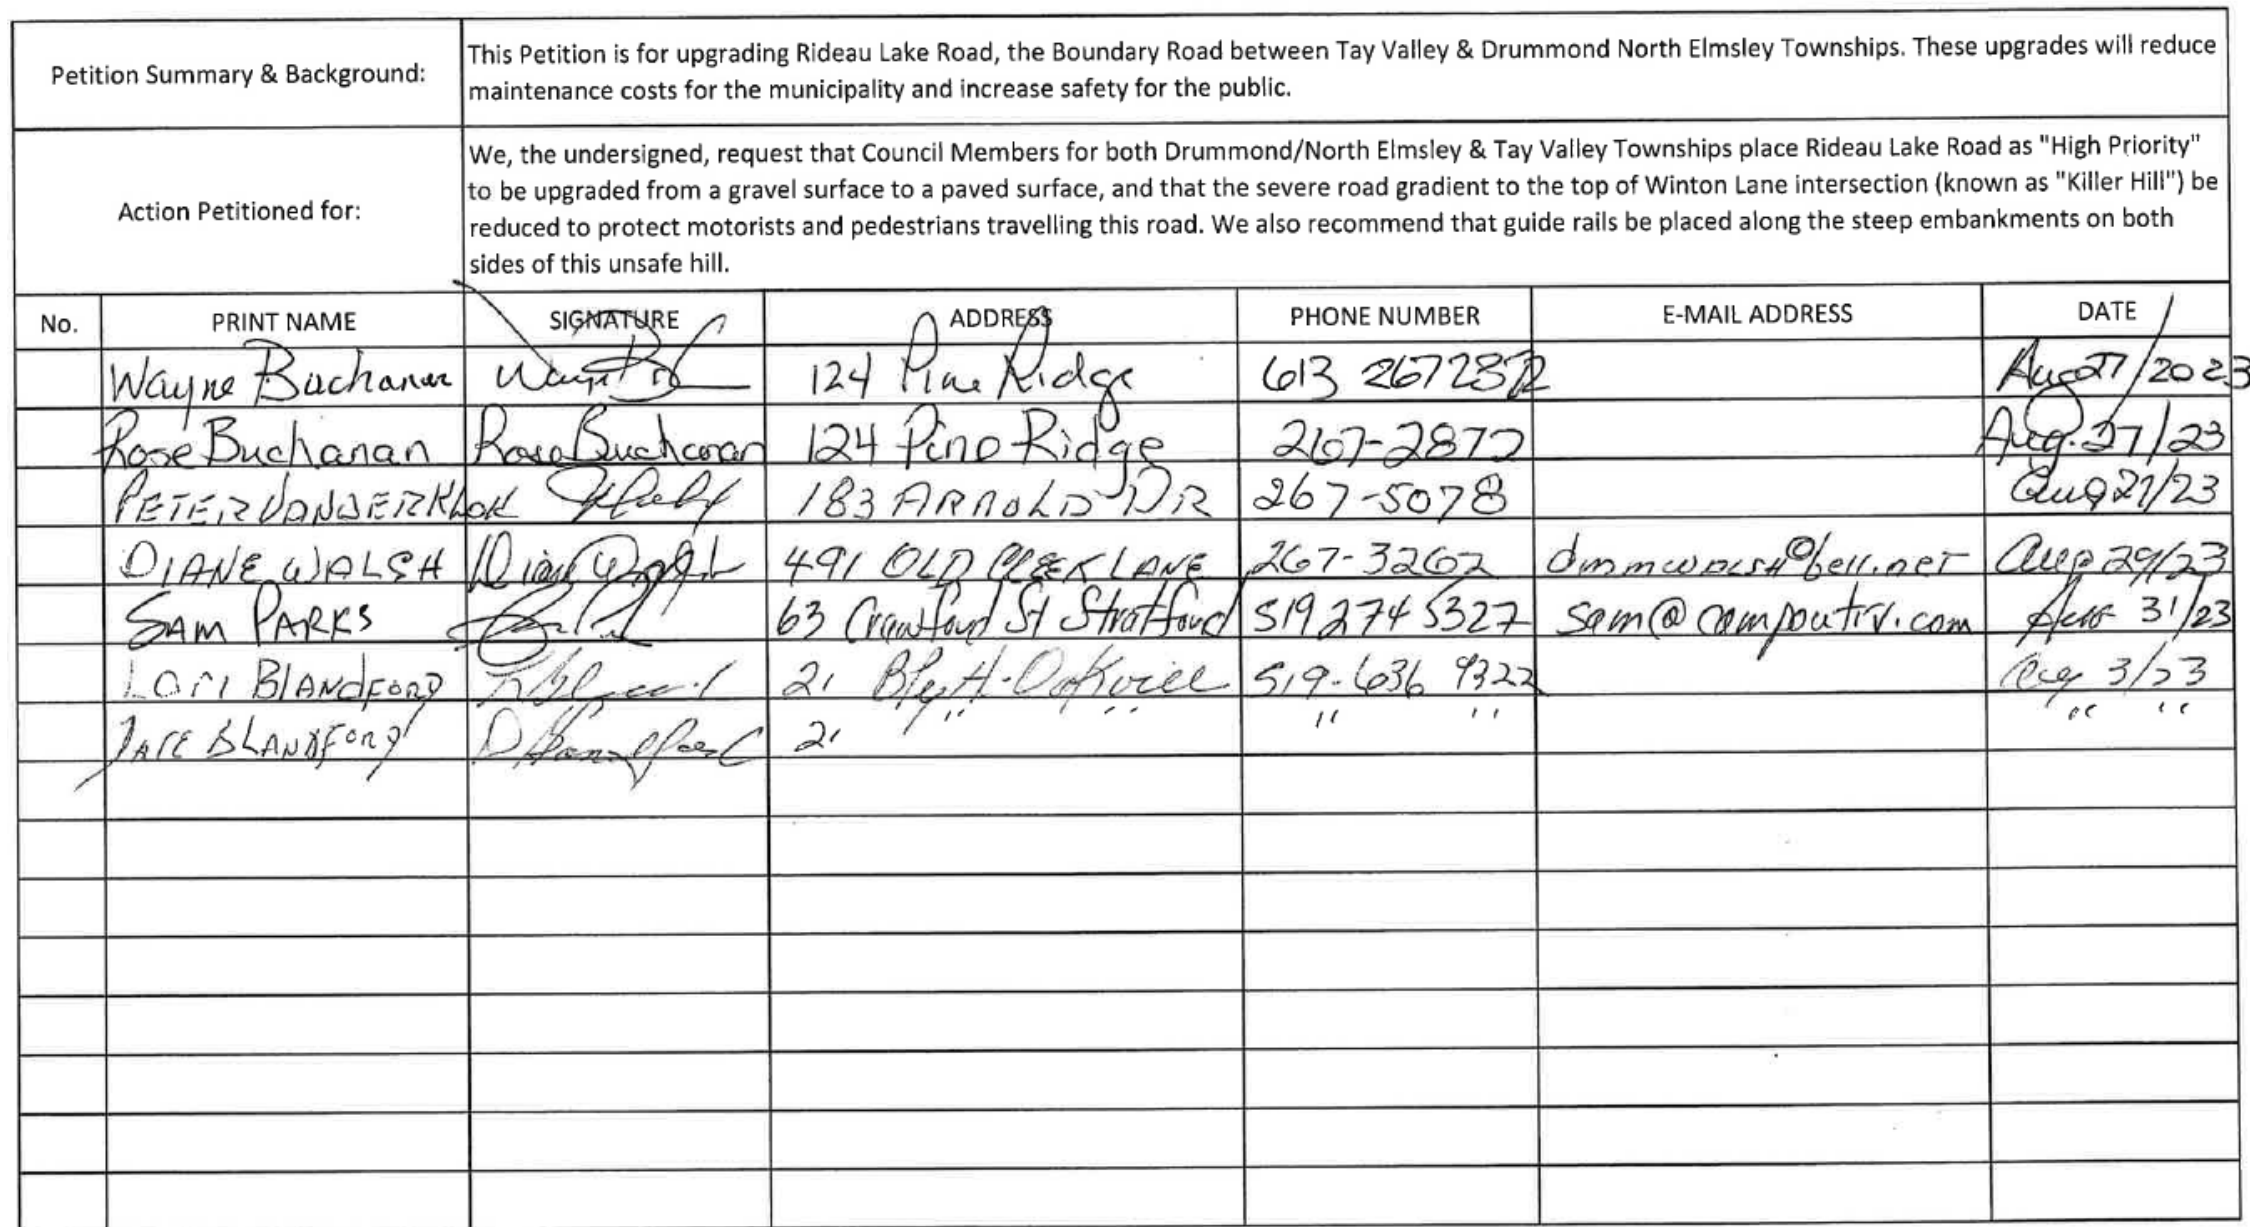 Petition Summary & Background:
This Petition is for upgrading Rideau Lake Road, the Boundary Road between Tay Valley & Drummond North Elmsley Townships. These upgrades will reduce
maintenance costs for the municipality and increase safety for the public.
Action Petitioned for:
We, the undersigned, request that Council Members for both Drummond/North Elmsley & Tay Valley Townships place Rideau Lake Road as "High Priority"
to be upgraded from a gravel surface to a paved surface, and that the severe road gradient to the top of Winton Lane intersection (known as "Killer Hill") be
reduced to protect motorists and pedestrians travelling this road. We also recommend that guide rails be placed along the steep embankments on both
sides of this unsafe hill.
No. PRINT NAME SIGNATURE ADDRESS PHONE NUMBER E-MAIL ADDRESS DATE
Wayne Buchanan Wayne 124 Pine Ridge 613 267 2872 Aug 27/2023
Rose Buchanan Rose Buchanan 124 Pine Ridge 267-2872 Aug. 27/23
PETER VANDERKLOK 183 ARNOLD DR 267-5078 Aug 27/23
DIANE WALSH Diane Walsh 491 OLD CREEK LANE 267-3262 dmmwalsh@bell.net Aug 29/23
SAM PARKS 63 Crawford St Stratford 519 274 5327 sam@campoutrv.com Aug 31/23
LORI BLANDFORD 21 519-636 9322 Aug 3/23
BLANDFORD 21 " " " " " "